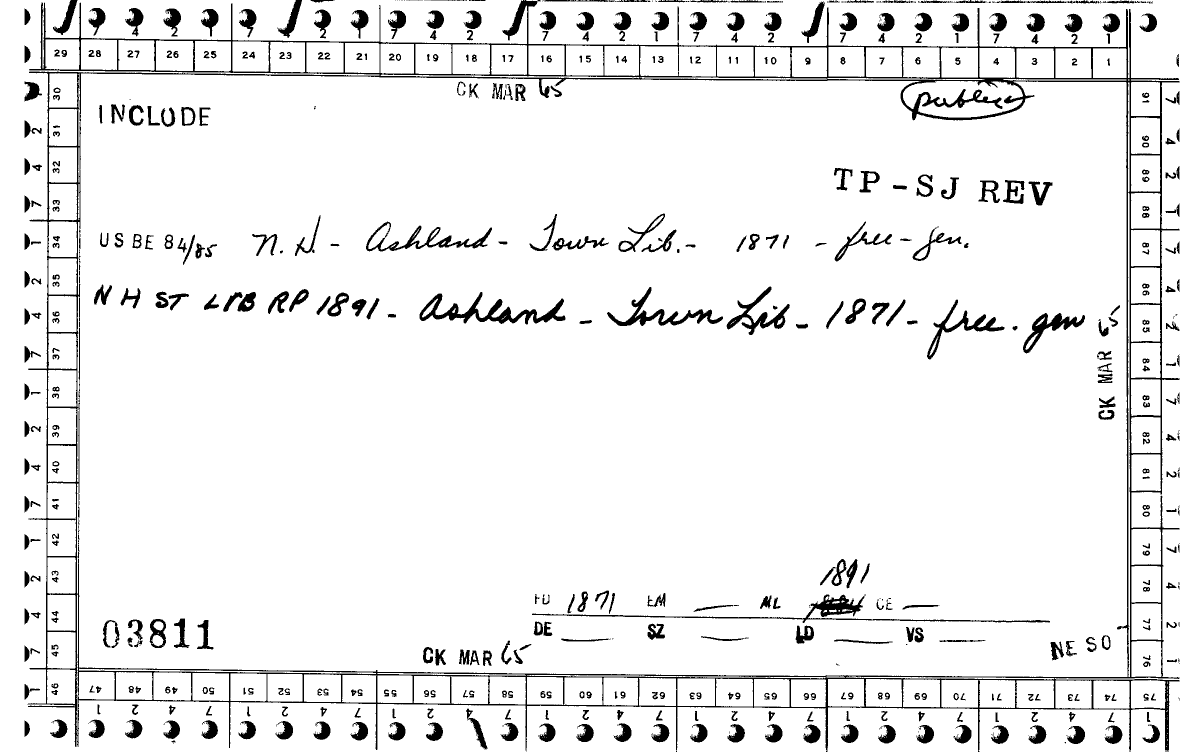 7 4 2 1 7 2 1 7 4 2 7 4 2 1 7 4 2 1 7 4 2 1 7 4 2 1
29 28 27 26 25 24 23 22 21 20 19 18 17 16 15 14 13 12 11 10 9 8 7 6 5 4 3 2 1
CK MAR 65
public
INCLUDE
TP-SJ REV
US BE 84/85 N.H. - Ashland - Town Lib. - 1871 - free - gen.
N H ST LIB RP 1891 - Ashland - Town Lib - 1871 - free. gen
CK MAR 65
1891
FD 1871 EM — ML 1884 CE —
DE — SZ — LD — VS —
03811
CK MAR 65
NE SO
30 31 32 33 34 35 36 37 38 39 40 41 42 43 44 45 46
91 90 89 88 87 86 85 84 83 82 81 80 79 78 77 76 75
47 48 49 50 51 52 53 54 55 56 57 58 59 60 61 62 63 64 65 66 67 68 69 70 71 72 73 74